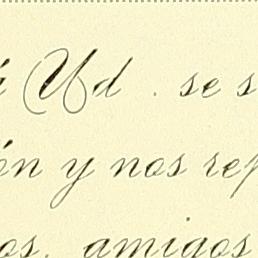 á Ud. se s
ón y nos rep
os. amigos